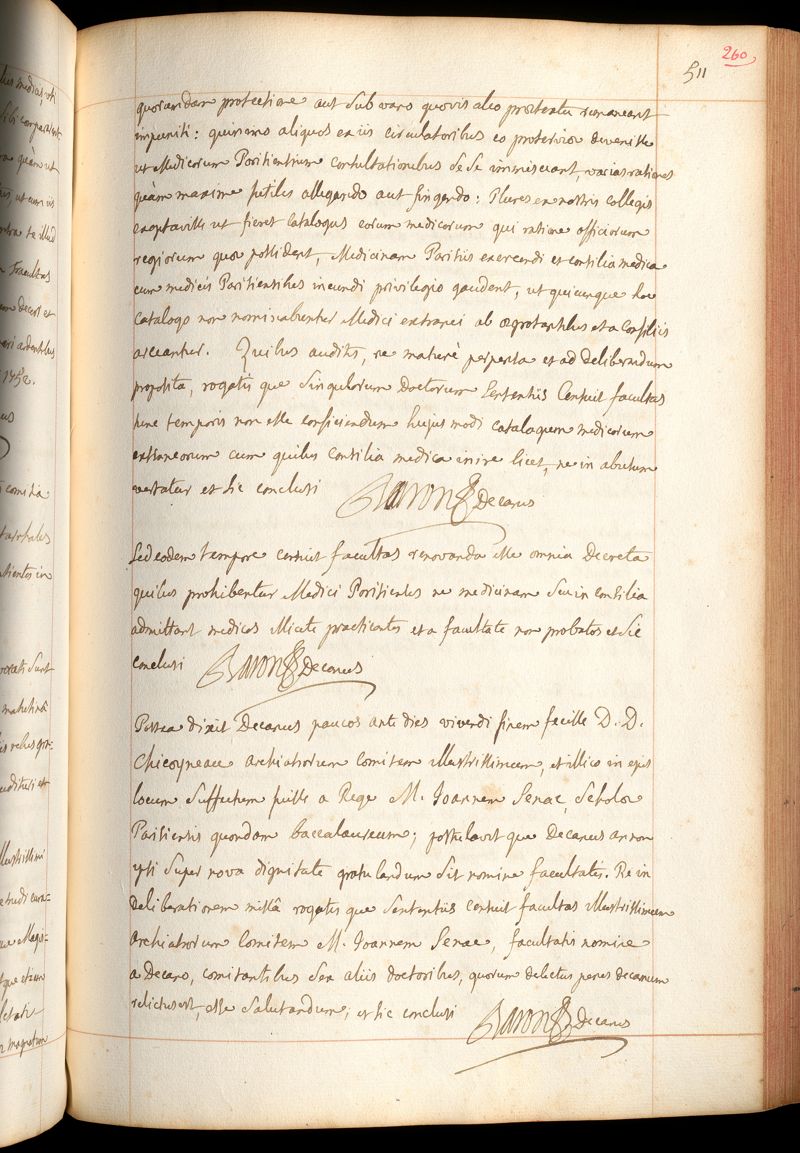 260
511
quorumdam protectione aut sub vano quovis alio praetextu remaneant
impuniti: quinimo aliquos ex iis circulatoribus eo protervior devenisse
ut Medicorum Parisientium consultationibus se se immisceant, varias rationes
quàm maxime futiles allegando aut fingendo: Plures ex nostris collegis
exoptavisse ut fieret Catalogus eorum medicorum qui ratione officiorum
regiorum quae possident, Medicinam Parisiis exercendi et consilia medica
cum medicis Parisiensibus ineundi privilegio gaudent, ut quicunque hoc
Catalogo non nominabuntur Medici extranei ab aegrotantibus et a consiliis
arceantur. Quibus auditis, re maturè perpensa et ad deliberandum
proposita, rogatis que singulorum Doctorum sententiis Censuit facultas
hunc temporis non esse conficiendum hujus modi catalogum medicorum
extraneorum cum quibus consilia medica inire licet, ne in abusum
vertatur et sic conclusi Baron Decanus
Sed eodem tempore censuit facultas renovanda esse omnia Decreta
quibus prohibentur Medici Parisienses ne medicinam seu in consilia
admittant medicos illicite practicantes et a facultate non probatos et sic
conclusi Baron Decanus
Postea dixit Decanus paucos ante dies vivendi finem fecisse D. D.
Chicoyneau archiatrorum comitem illustrissimum, et illico in ejus
locum suffectum fuisse a Rege M. Joannem Senac, Scholae
Parisiensis quondam baccalaureum; postulavit que Decanus an non
ipsi super nova dignitate gratulandum sit nomine facultatis. Re in
deliberationem missâ rogatis que sententiis censuit facultas illustrissimum
archiatrorum Comitem M. Joannem Senac, facultatis nomine
a Decano, comitantibus sex aliis doctoribus, quorum delectus penes decanum
relictus est, esse salutandum; et sic conclusi Baron Decanus